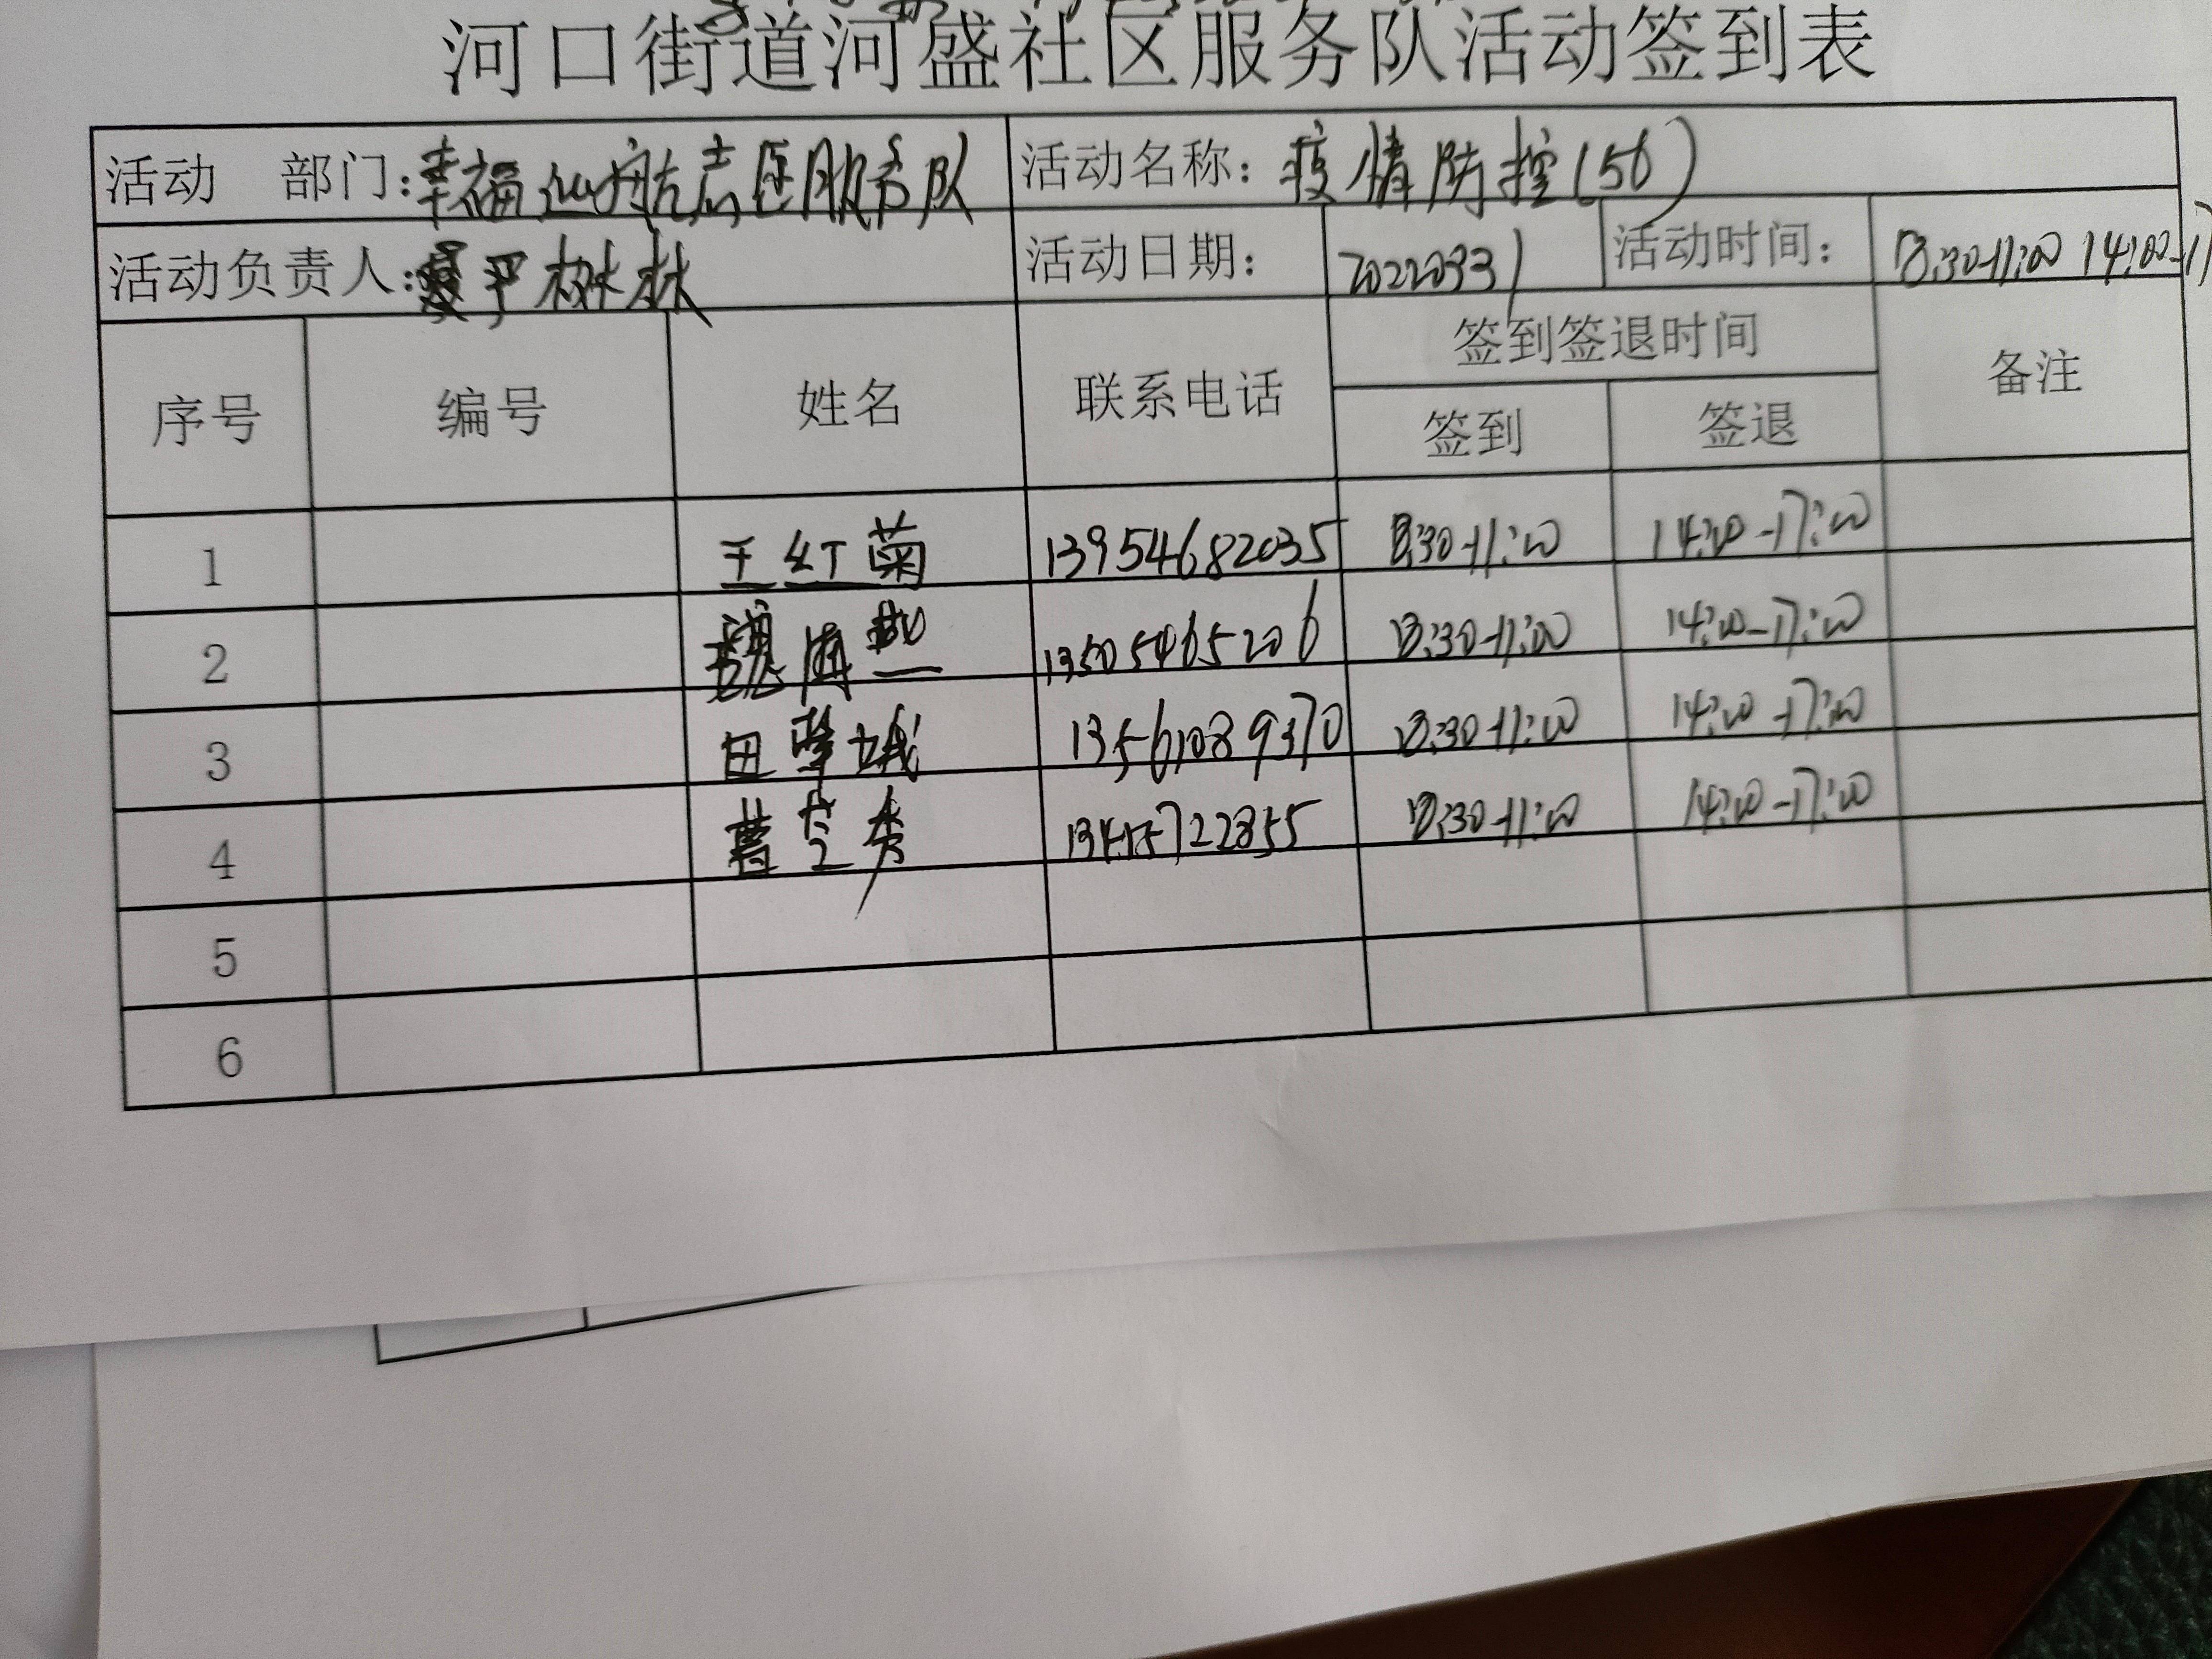 河口街道河盛社区服务队活动签到表
活动 部门:幸福 志愿服务队 活动名称: 疫情防控(56)
活动负责人: 尹树林 活动日期: 20220331 活动时间: 8:30-11:00 14:00-17
序号 编号 姓名 联系电话 签到签退时间 备注
签到 签退
1 王红菊 13954682035 8:30-11:00 14:00-17:00
2 魏 13505465206 8:30-11:00 14:00-17:00
3 田 城 13561089370 8:30-11:00 14:00-17:00
4 秀 8:30-11:00 14:00-17:00
5
6